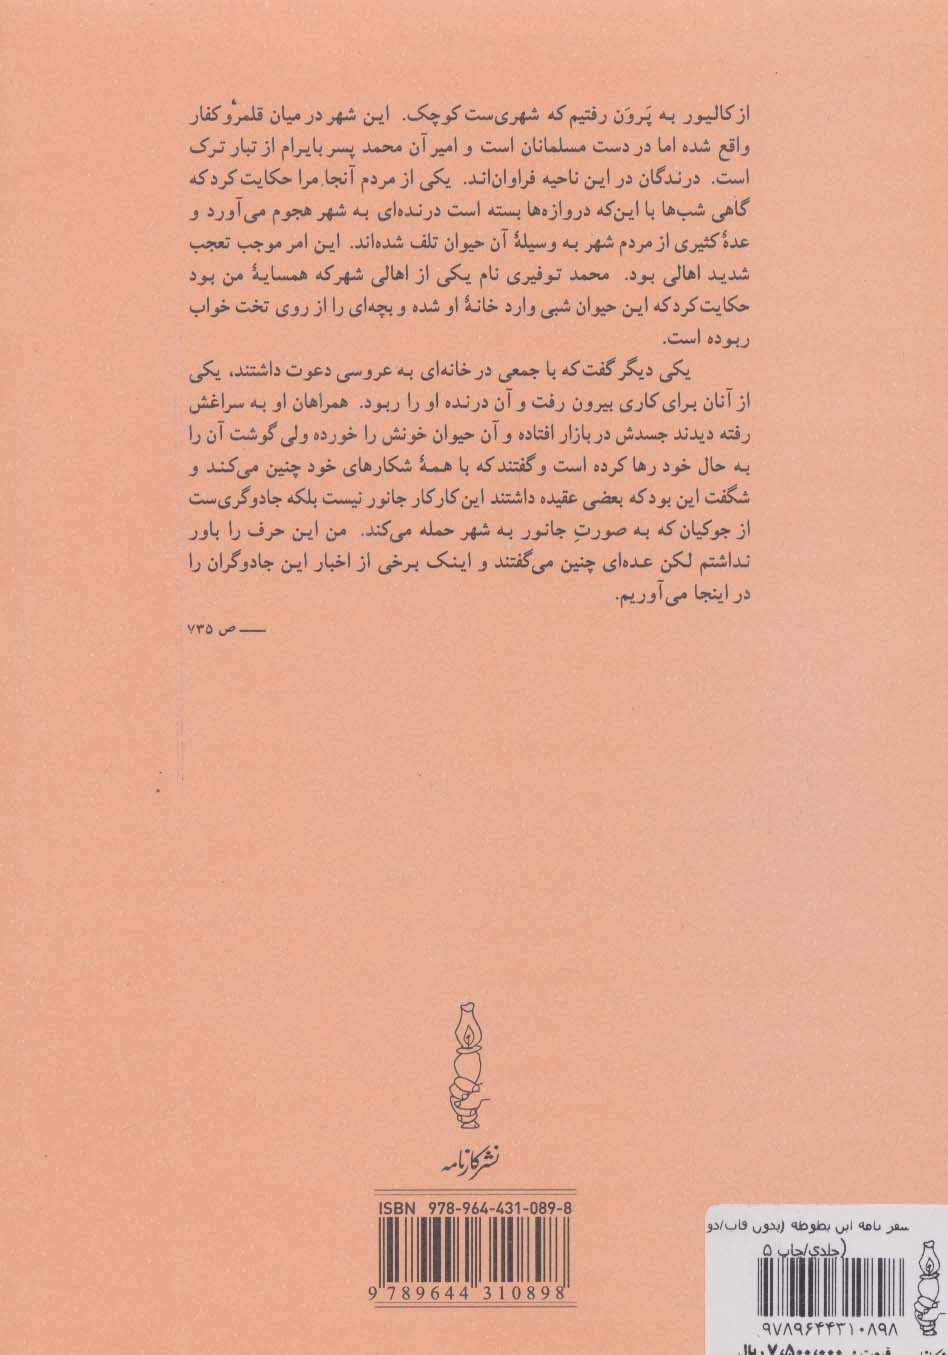 از کالیور به پَروَن رفتیم که شهری‌ست کوچک. این شهر در میان قلمرؤ کفار
واقع شده اما در دست مسلمانان است و امیر آن محمد پسر بایرام از تبار ترک
است. درندگان در این ناحیه فراوان‌اند. یکی از مردم آنجا مرا حکایت کرد که
گاهی شب‌ها با این‌که دروازه‌ها بسته است درنده‌ای به شهر هجوم می‌آورد و
عدهٔ کثیری از مردم شهر به وسیلهٔ آن حیوان تلف شده‌اند. این امر موجب تعجب
شدید اهالی بود. محمد توفیری نام یکی از اهالی شهر که همسایهٔ من بود
حکایت کرد که این حیوان شبی وارد خانهٔ او شده و بچه‌ای را از روی تخت خواب
ربوده است.
یکی دیگر گفت که با جمعی در خانه‌ای به عروسی دعوت داشتند، یکی
از آنان برای کاری بیرون رفت و آن درنده او را ربود. همراهان او به سراغش
رفته دیدند جسدش در بازار افتاده و آن حیوان خونش را خورده ولی گوشت آن را
به حال خود رها کرده است و گفتند که با همهٔ شکارهای خود چنین می‌کند و
شگفت این بود که بعضی عقیده داشتند این کار کار جانور نیست بلکه جادوگری‌ست
از جوکیان که به صورتِ جانور به شهر حمله می‌کند. من این حرف را باور
نداشتم لکن عده‌ای چنین می‌گفتند و اینک برخی از اخبار این جادوگران را
در اینجا می‌آوریم.
— ص ۷۳۵
نشر کارنامه
ISBN 978-964-431-089-8
9 789644 310898
سفر نامه ابن بطوطه (بدون قاب/دو
جلدی/چاپ ۵)
۹۷۸۹۶۴۴۳۱۰۸۹۸
قیمت: ۷,۵۰۰,۰۰۰ ریال